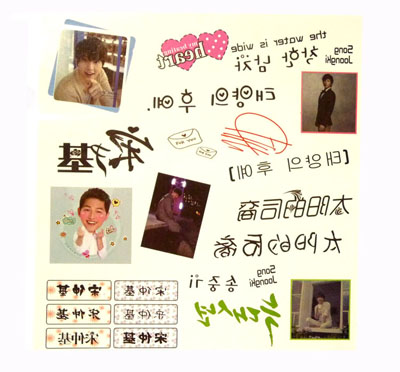 the water is wide
my beating
heart
Song
Joongki
착한 남자
태양의 후예.
[태양의 후예]
宋仲基
太阳的后裔
太阳的后裔
Song
Joongki
송중기
늑대소년
宋仲基 宋仲基
宋仲基 宋仲基
宋仲基 宋仲基